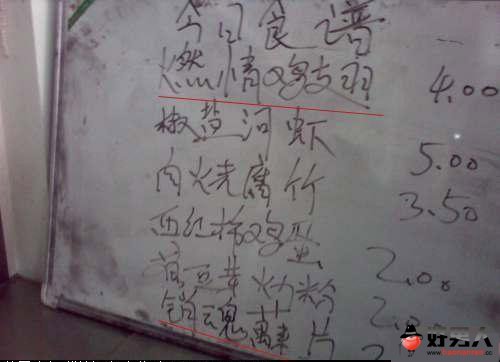 今日食谱
燃情鸡翅 4.00
椒盐河虾 5.00
肉烧腐竹 3.50
西红柿鸡蛋 2.00
炒粉 2.0
销魂萝卜片 2
好男人